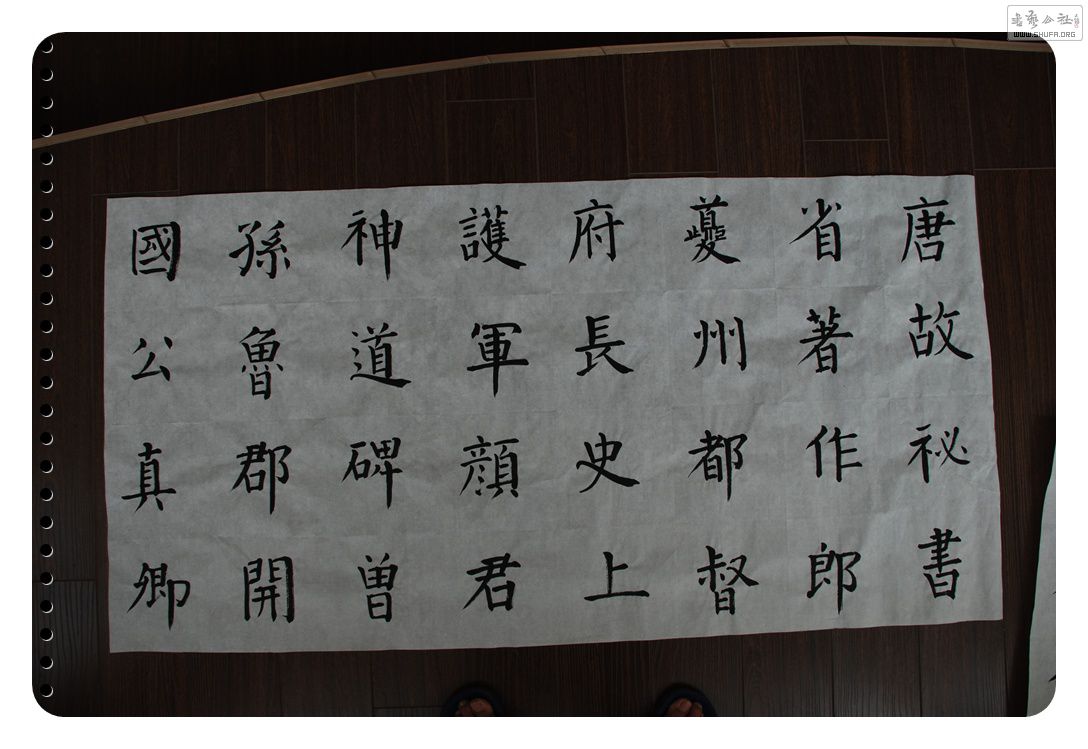 唐故祕書
省著作郎
夔州都督
府長史上
護軍顔君
神道碑曽
孫魯郡開
國公真卿
书艺公社
WWW.SHUFA.ORG